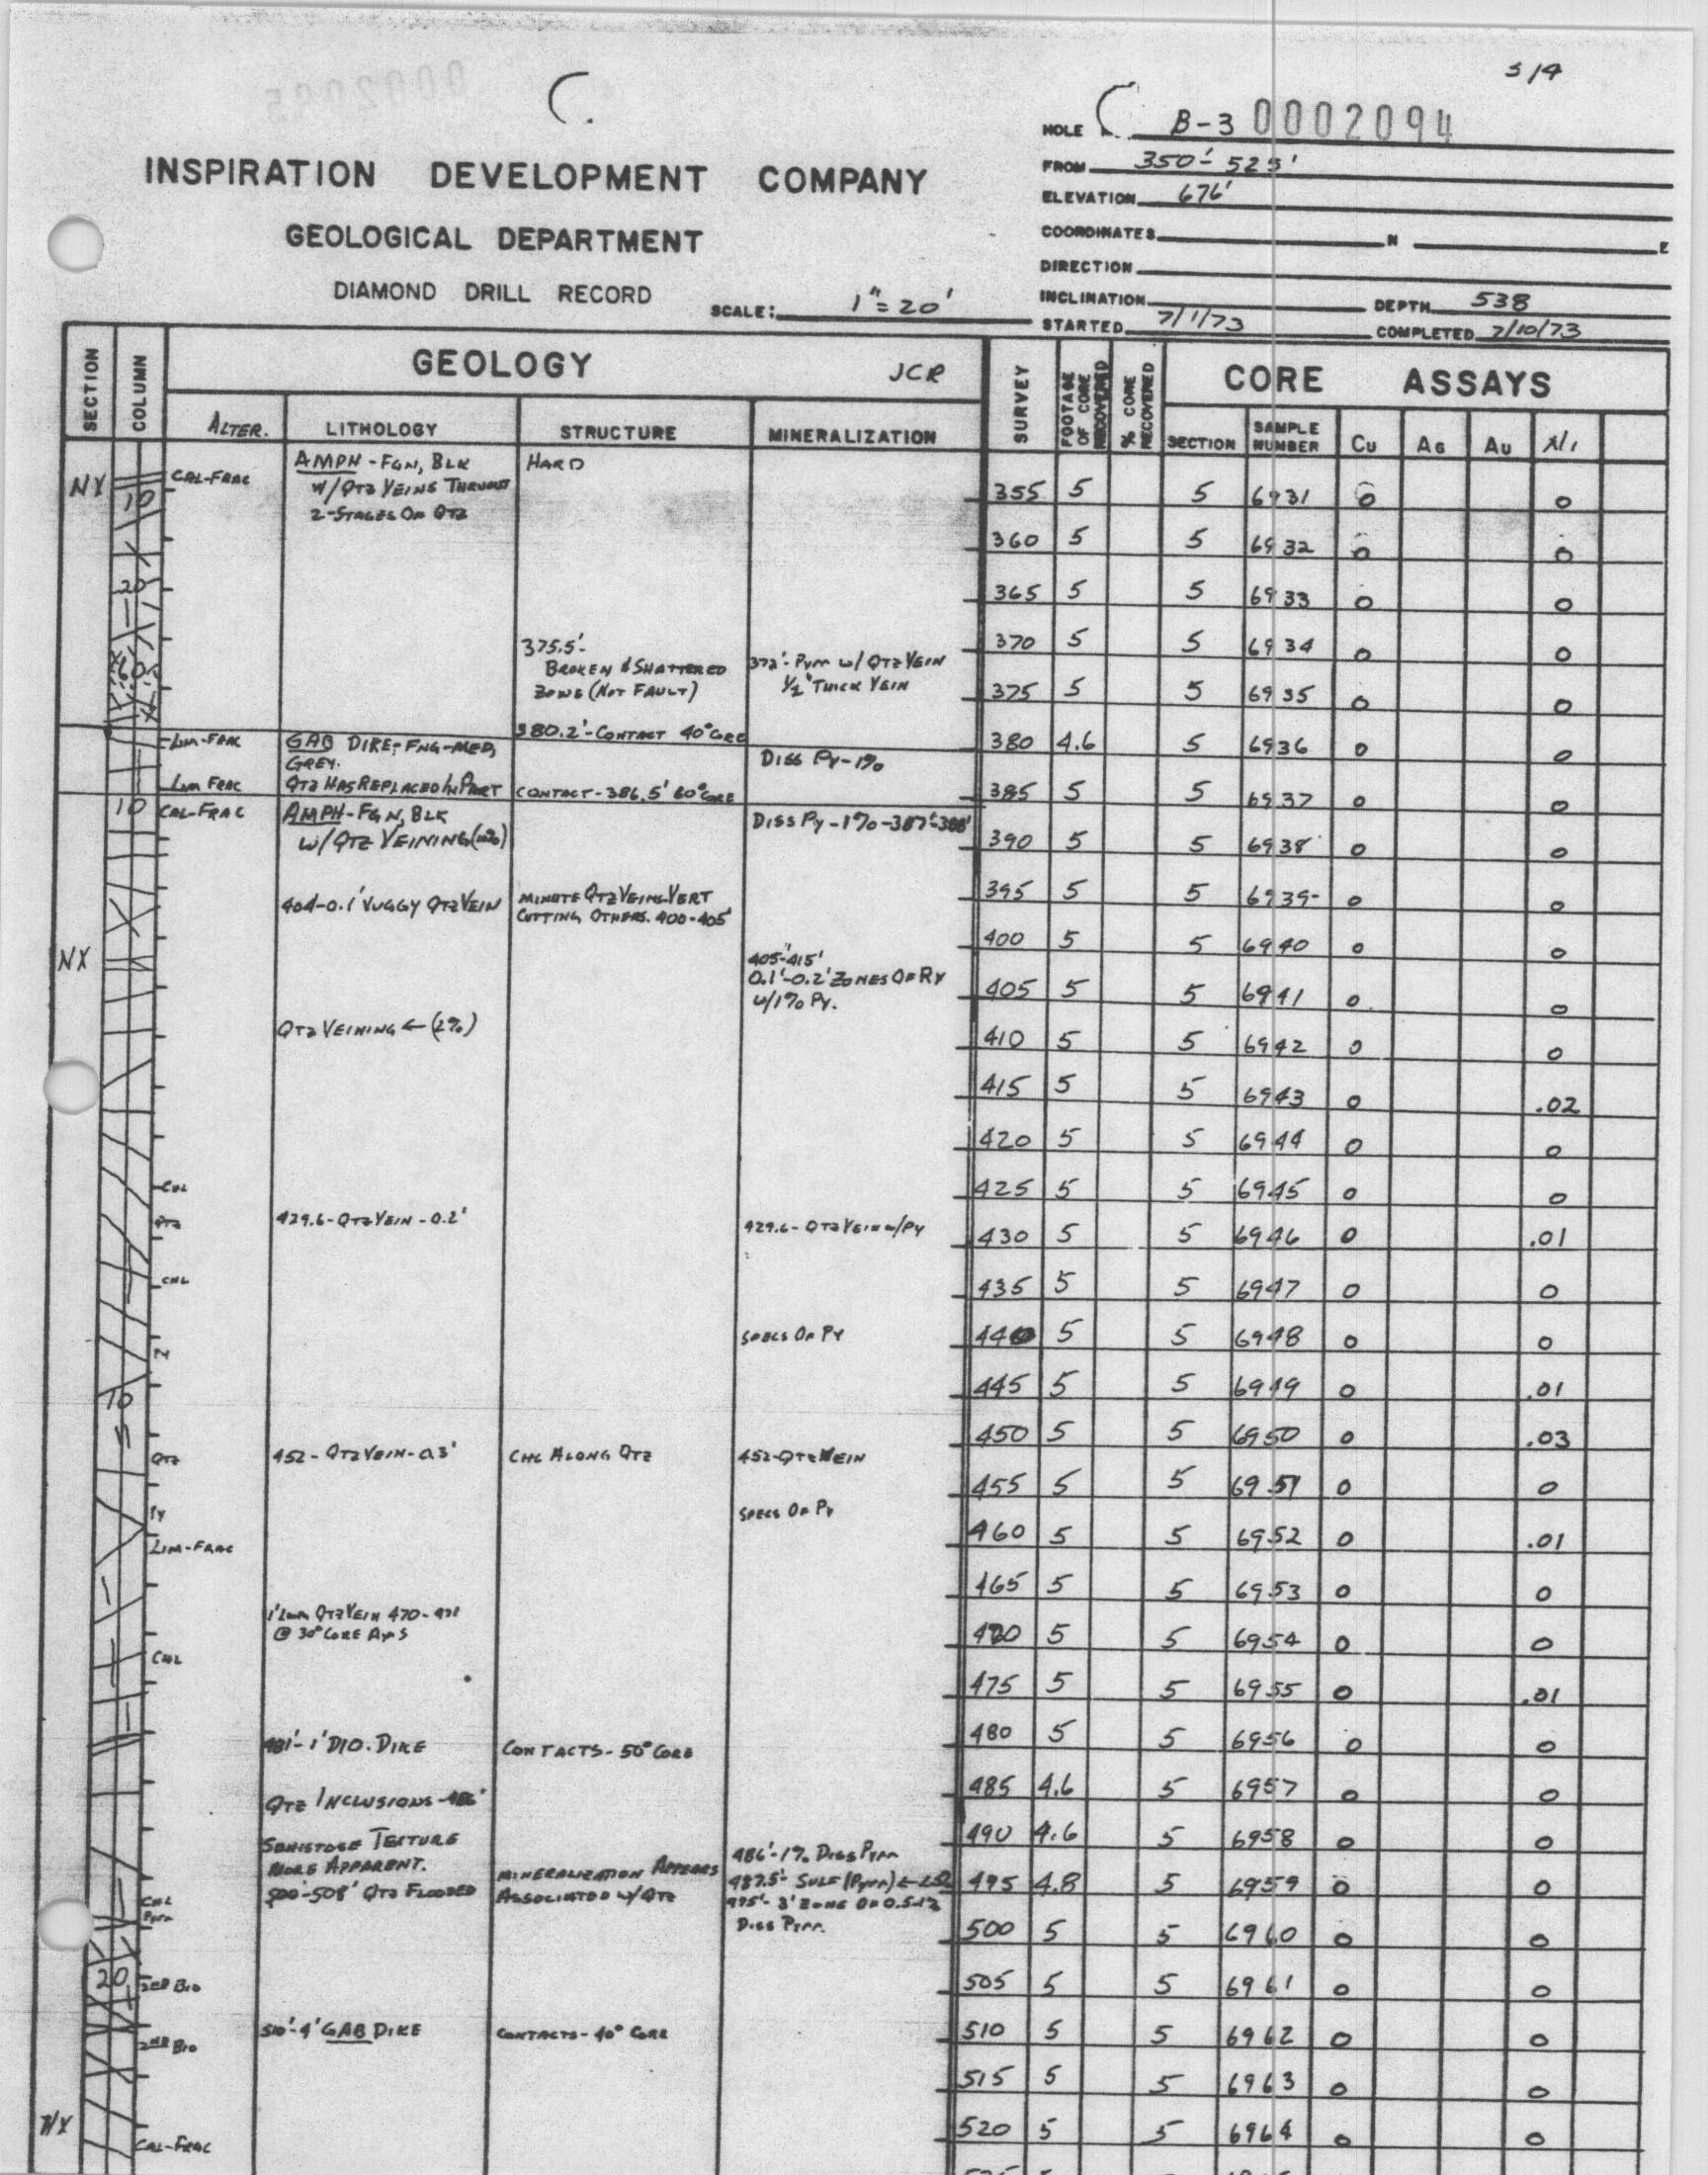 3/4
HOLE B-3 0002094
FROM 350'-525'
ELEVATION 676'
COORDINATES N E
DIRECTION
INCLINATION DEPTH 538
STARTED 7/1/73 COMPLETED 7/10/73
INSPIRATION DEVELOPMENT COMPANY
GEOLOGICAL DEPARTMENT
DIAMOND DRILL RECORD SCALE: 1"=20'
SECTION COLUMN GEOLOGY JCR SURVEY FOOTAGE OF CORE RECOVERED % CORE RECOVERED CORE ASSAYS
ALTER. LITHOLOGY STRUCTURE MINERALIZATION SECTION SAMPLE NUMBER Cu AG AU Ni
NX
10
CAL-FRAC
AMPH-FGN, BLK
W/QTZ VEINS THRUOUT
2-STAGES OF QTZ
HARD
20
375.5'-
BROKEN & SHATTERED
ZONE (NOT FAULT)
372'-PYRR W/QTZ VEIN
1/2" THICK VEIN
380.2'-CONTACT 40° CORE
LIM-FRAC
GAB DIKE-FNG-MED,
GREY.
DISS PY-1%
LIM FRAC
QTZ HAS REPLACED IN PART
CONTACT-386.5' 60° CORE
10
CAL-FRAC
AMPH-FGN, BLK
W/QTZ VEINING
DISS PY-1%-387'-388'
404-0.1' VUGGY QTZ VEIN
MINUTE QTZ VEINS-VERT
CUTTING OTHERS. 400-405'
NX
405'-415'
0.1'-0.2' ZONES OF
W/1% PY.
QTZ VEINING ← (2%)
CHL
QTZ
429.6-QTZ VEIN-0.2'
429.6-QTZ VEIN W/PY
CHL
SPECS OF PY
PY
10
QTZ
452-QTZ VEIN-0.3'
CHL ALONG QTZ
452-QTZ VEIN
PY
SPECS OF PY
LIM-FRAC
QTZ VEIN 470-471
@ 30° CORE AXIS
CHL
481'-1' DIO. DIKE
CONTACTS-50° CORE
QTZ INCLUSIONS-486'
SCHISTOSE TEXTURE
MORE APPARENT.
500'-508' QTZ FLOODED
MINERALIZATION APPEARS
ASSOCIATED W/QTZ
486'-1% DISS PYRR
487.5'-SULF (PYRR)
495'-3' ZONE OF 0.5-1%
DISS PYRR.
CHL
PYRR
20
2ND BIO
510'-4' GAB DIKE
CONTACTS-40° CORE
2ND BIO
NX
CAL-FRAC
355 5 5 6931 0 0
360 5 5 6932 0 0
365 5 5 6933 0 0
370 5 5 6934 0 0
375 5 5 6935 0 0
380 4.6 5 6936 0 0
385 5 5 6937 0 0
390 5 5 6938 0 0
395 5 5 6939 0 0
400 5 5 6940 0 0
405 5 5 6941 0 0
410 5 5 6942 0 0
415 5 5 6943 0 .02
420 5 5 6944 0 0
425 5 5 6945 0 0
430 5 5 6946 0 .01
435 5 5 6947 0 0
440 5 5 6948 0 0
445 5 5 6949 0 .01
450 5 5 6950 0 .03
455 5 5 6951 0 0
460 5 5 6952 0 .01
465 5 5 6953 0 0
470 5 5 6954 0 0
475 5 5 6955 0 .01
480 5 5 6956 0 0
485 4.6 5 6957 0 0
490 4.6 5 6958 0 0
495 4.8 5 6959 0 0
500 5 5 6960 0 0
505 5 5 6961 0 0
510 5 5 6962 0 0
515 5 5 6963 0 0
520 5 5 6964 0 0